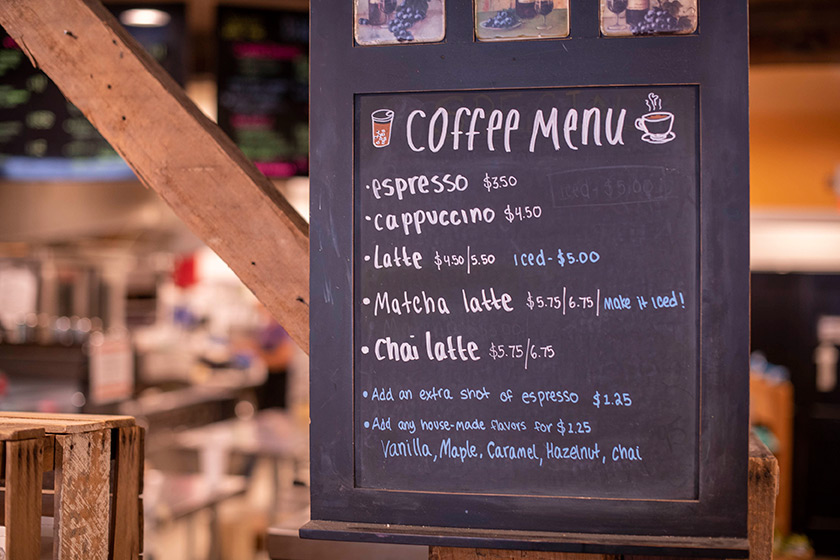 Coffee Menu
• espresso $3.50
• cappuccino $4.50
• Latte $4.50/5.50 iced - $5.00
• Matcha latte $5.75/6.75/ Make it iced!
• Chai latte $5.75/6.75
• Add an extra shot of espresso $1.25
• Add any house-made flavors for $1.25
Vanilla, Maple, Caramel, Hazelnut, chai